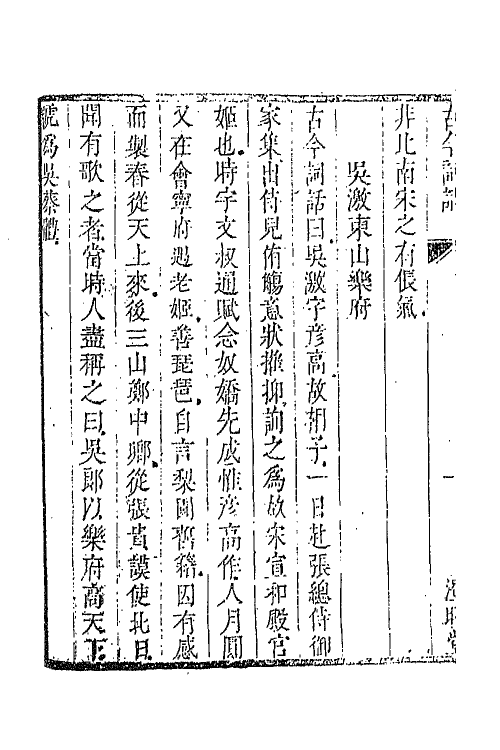 古今詞話
一
非北南宋之有倀氣
吳激東山樂府
古今詞話曰吳激字彥高故相子一日赴張總侍御
家集出侍兒侑觴意狀摧抑詢之爲故宋宣和殿宮
姬也時宇文叔通賦念奴嬌先成惟彥高作人月圓
又在會寧府遇老姬善琵琶自言梨園舊籍因有感
而製春從天上來後三山鄭中卿從張貴謨使北日
聞有歌之者當時人盡稱之曰吳郎以樂府高天下
號爲吳蔡體